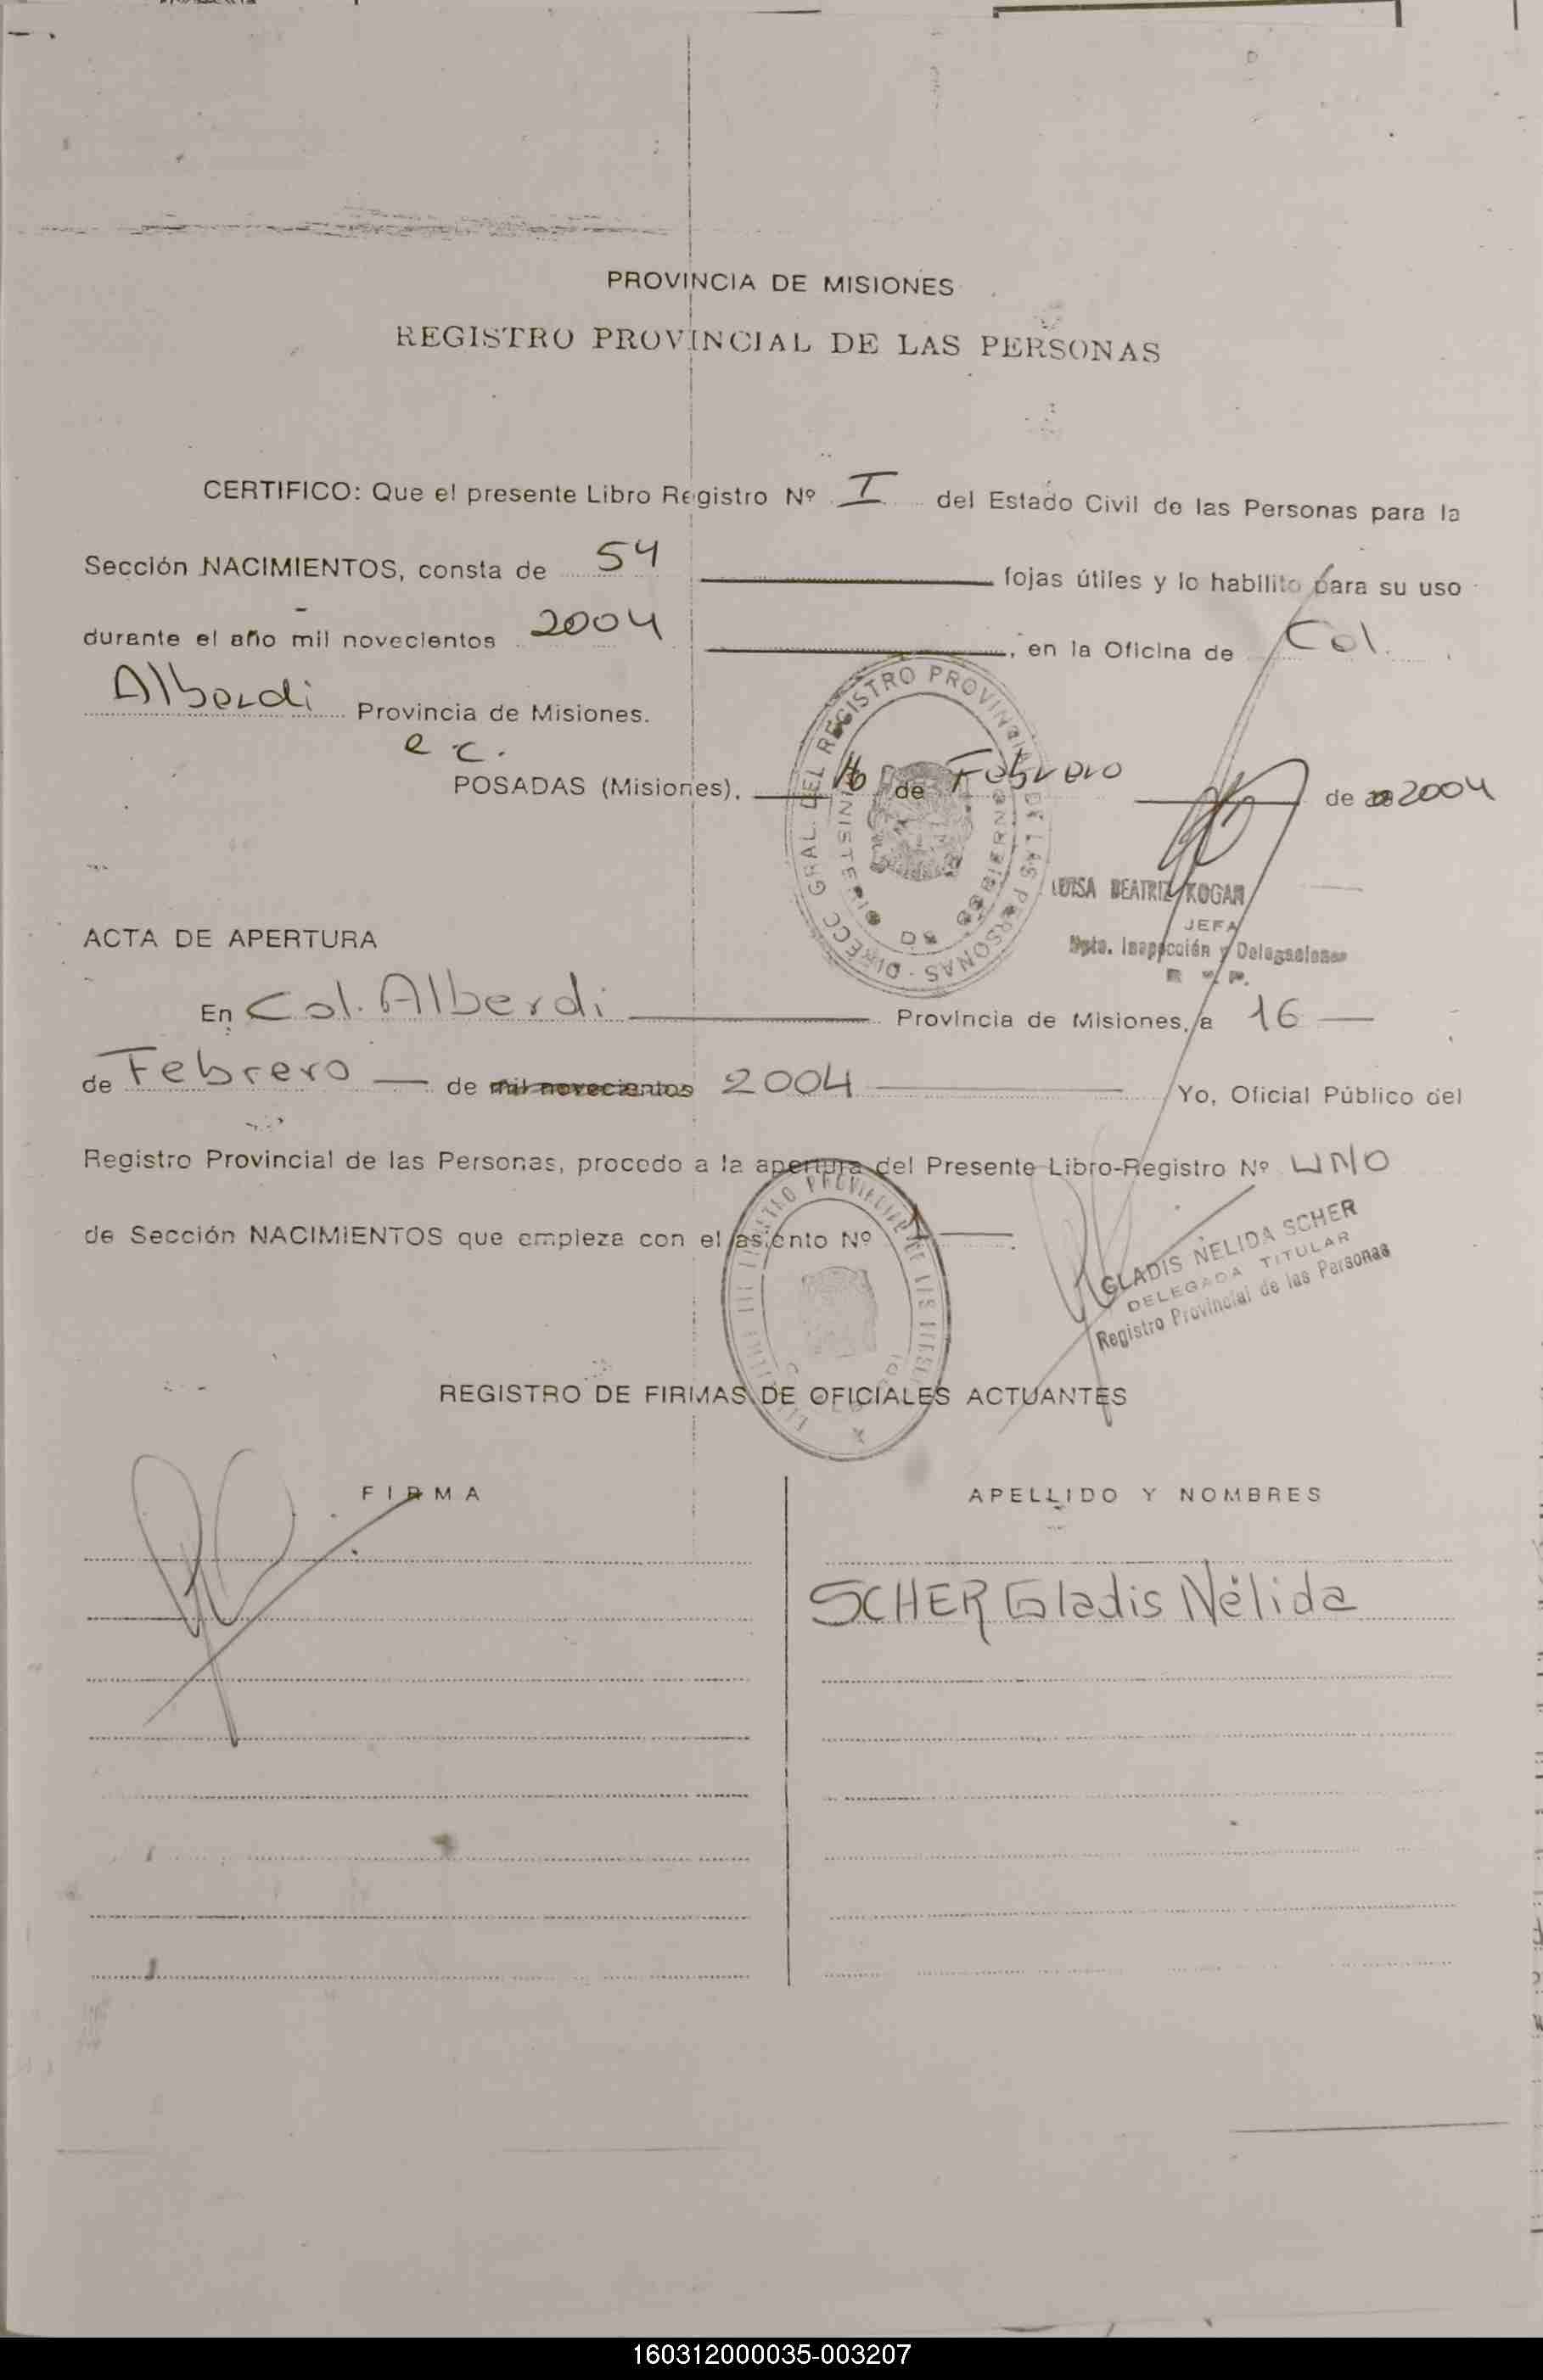 PROVINCIA DE MISIONES
REGISTRO PROVINCIAL DE LAS PERSONAS
CERTIFICO: Que el presente Libro Registro Nº I del Estado Civil de las Personas para la
Sección NACIMIENTOS, consta de 54 fojas útiles y lo habilito para su uso
durante el año mil novecientos 2004, en la Oficina de Col.
Alberdi Provincia de Misiones.
e c.
POSADAS (Misiones), 16 de Febrero de 2004
DIRECC. GRAL. DEL REGISTRO PROVINCIAL DE LAS PERSONAS
MINISTERIO DE GOBIERNO
LUISA BEATRIZ KOGAN
JEFA
Dpto. Inspección y Delegaciones
R. P.
ACTA DE APERTURA
En Col. Alberdi Provincia de Misiones, a 16
de Febrero de mil novecientos 2004 Yo, Oficial Público del
Registro Provincial de las Personas, procedo a la apertura del Presente Libro-Registro Nº UNO
de Sección NACIMIENTOS que empieza con el asiento Nº 1
GLADIS NELIDA SCHER
DELEGADA TITULAR
Registro Provincial de las Personas
REGISTRO DE FIRMAS DE OFICIALES ACTUANTES
FIRMA APELLIDO Y NOMBRES
SCHER Gladis Nélida
160312000035-003207